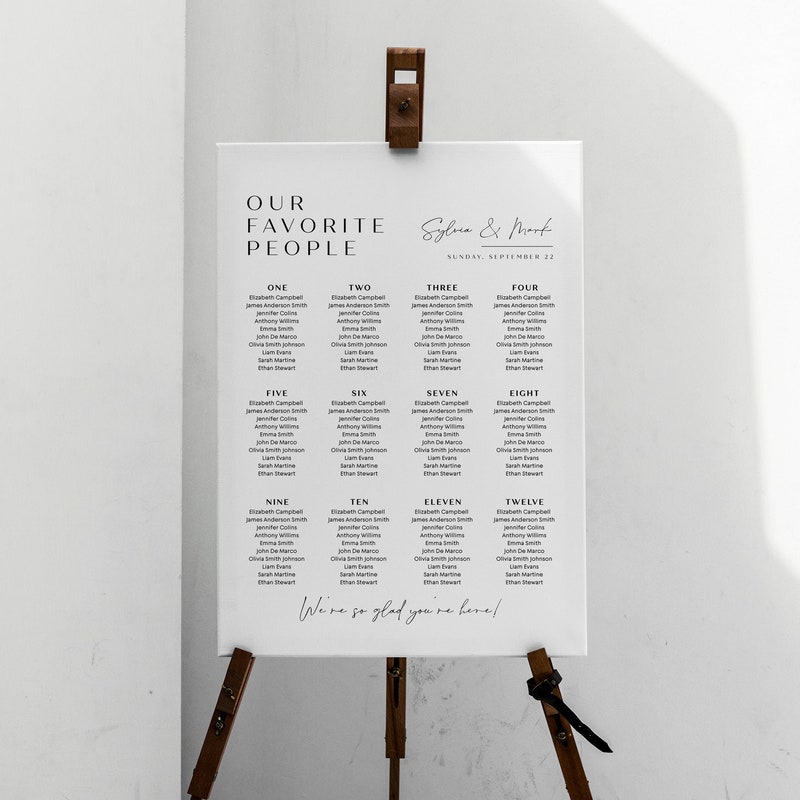 OUR
FAVORITE
PEOPLE
Sylvia & Mark
SUNDAY, SEPTEMBER 22
ONE
Elizabeth Campbell
James Anderson Smith
Jennifer Colins
Anthony Willims
Emma Smith
John De Marco
Olivia Smith Johnson
Liam Evans
Sarah Martine
Ethan Stewart
TWO
Elizabeth Campbell
James Anderson Smith
Jennifer Colins
Anthony Willims
Emma Smith
John De Marco
Olivia Smith Johnson
Liam Evans
Sarah Martine
Ethan Stewart
THREE
Elizabeth Campbell
James Anderson Smith
Jennifer Colins
Anthony Willims
Emma Smith
John De Marco
Olivia Smith Johnson
Liam Evans
Sarah Martine
Ethan Stewart
FOUR
Elizabeth Campbell
James Anderson Smith
Jennifer Colins
Anthony Willims
Emma Smith
John De Marco
Olivia Smith Johnson
Liam Evans
Sarah Martine
Ethan Stewart
FIVE
Elizabeth Campbell
James Anderson Smith
Jennifer Colins
Anthony Willims
Emma Smith
John De Marco
Olivia Smith Johnson
Liam Evans
Sarah Martine
Ethan Stewart
SIX
Elizabeth Campbell
James Anderson Smith
Jennifer Colins
Anthony Willims
Emma Smith
John De Marco
Olivia Smith Johnson
Liam Evans
Sarah Martine
Ethan Stewart
SEVEN
Elizabeth Campbell
James Anderson Smith
Jennifer Colins
Anthony Willims
Emma Smith
John De Marco
Olivia Smith Johnson
Liam Evans
Sarah Martine
Ethan Stewart
EIGHT
Elizabeth Campbell
James Anderson Smith
Jennifer Colins
Anthony Willims
Emma Smith
John De Marco
Olivia Smith Johnson
Liam Evans
Sarah Martine
Ethan Stewart
NINE
Elizabeth Campbell
James Anderson Smith
Jennifer Colins
Anthony Willims
Emma Smith
John De Marco
Olivia Smith Johnson
Liam Evans
Sarah Martine
Ethan Stewart
TEN
Elizabeth Campbell
James Anderson Smith
Jennifer Colins
Anthony Willims
Emma Smith
John De Marco
Olivia Smith Johnson
Liam Evans
Sarah Martine
Ethan Stewart
ELEVEN
Elizabeth Campbell
James Anderson Smith
Jennifer Colins
Anthony Willims
Emma Smith
John De Marco
Olivia Smith Johnson
Liam Evans
Sarah Martine
Ethan Stewart
TWELVE
Elizabeth Campbell
James Anderson Smith
Jennifer Colins
Anthony Willims
Emma Smith
John De Marco
Olivia Smith Johnson
Liam Evans
Sarah Martine
Ethan Stewart
We're so glad you're here!